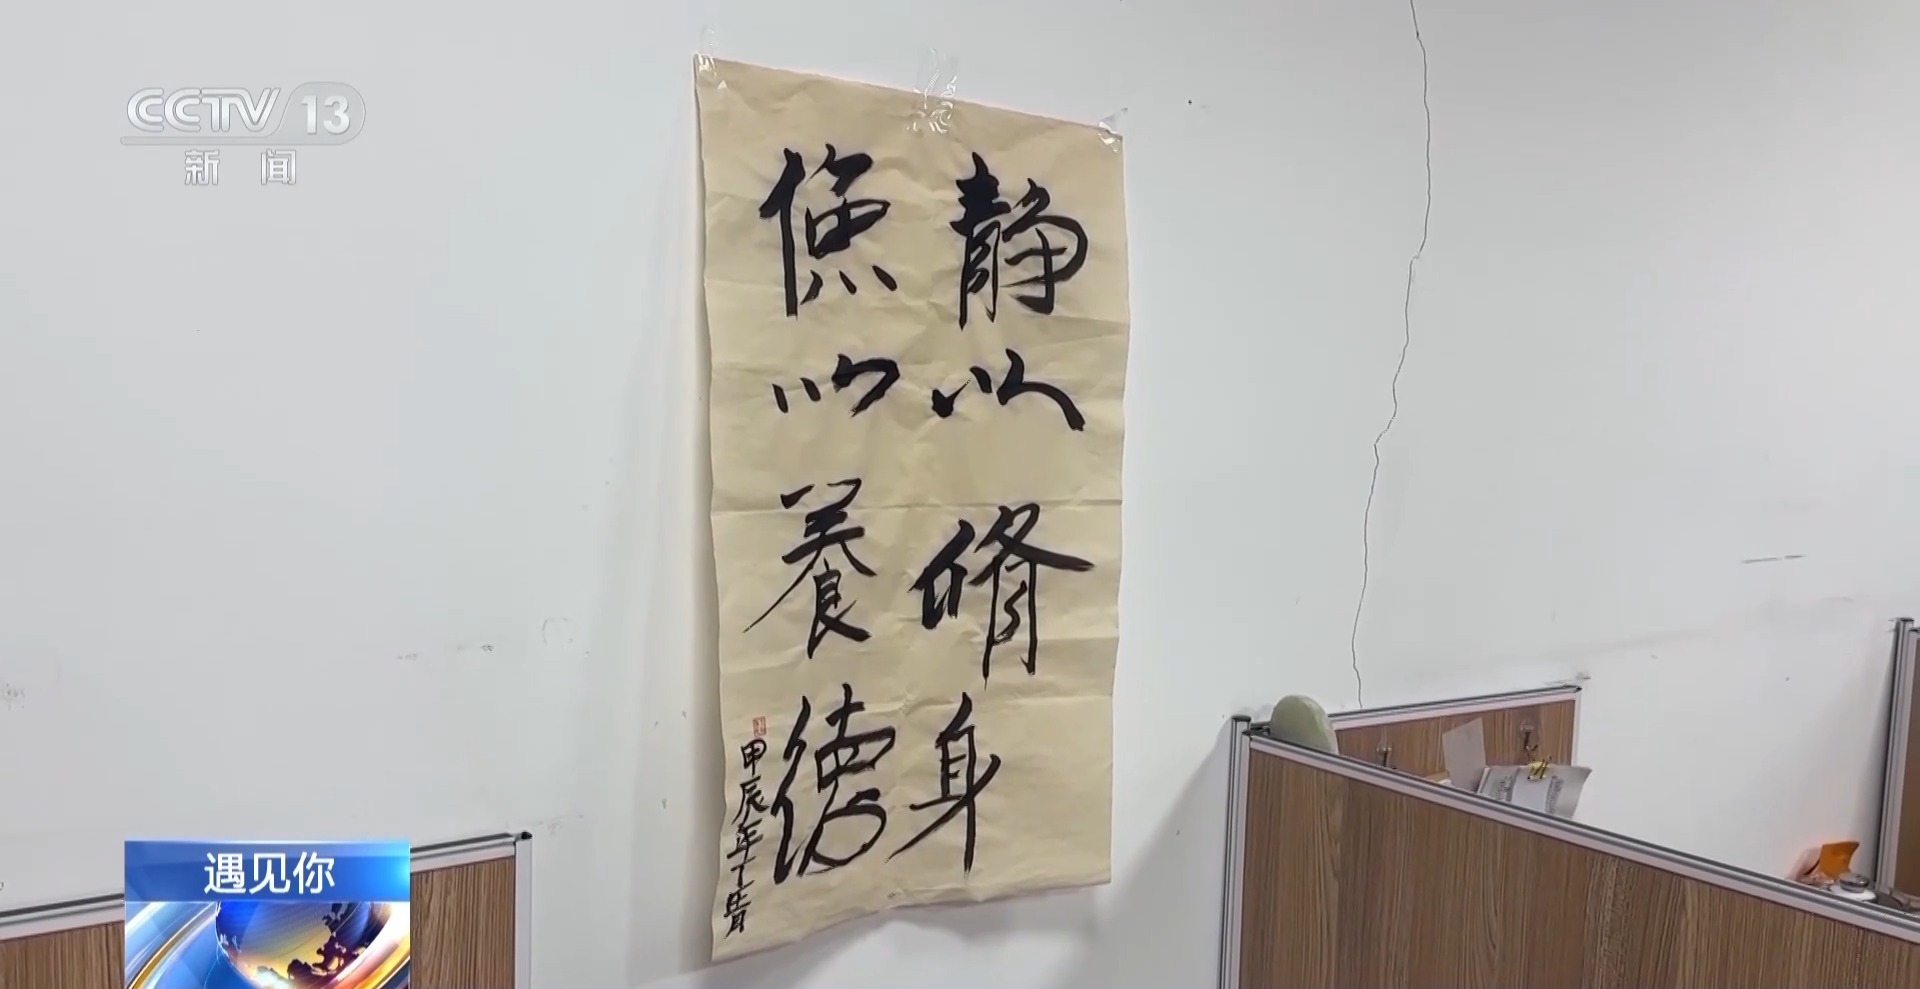 CCTV 13
新闻
静以脩身
儉以養德
甲辰年丁
遇见你